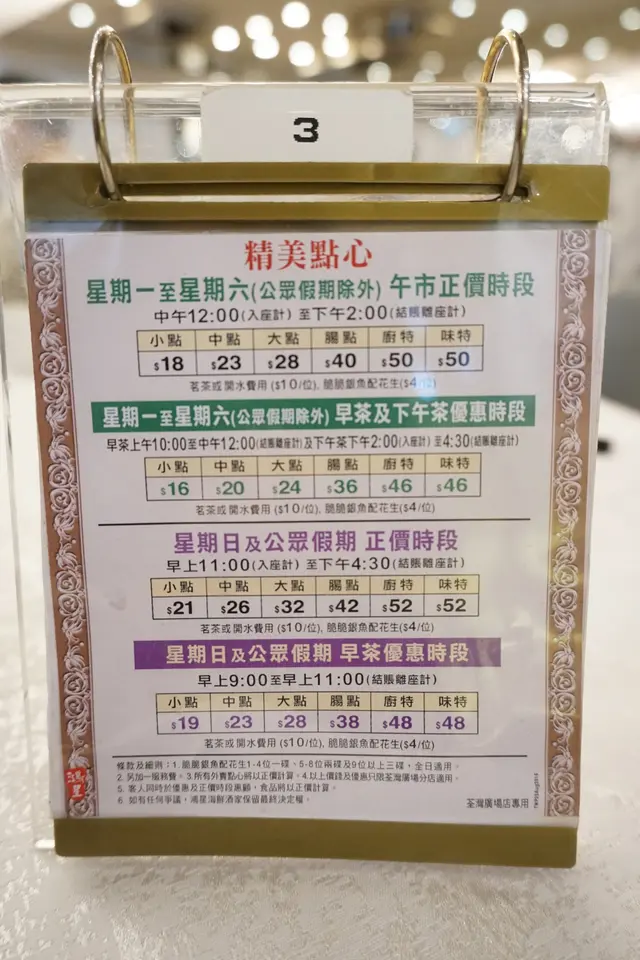 3
精美點心
星期一至星期六(公眾假期除外) 午市正價時段
中午12:00(入座計) 至下午2:00(結賬離座計)
小點 中點 大點 腸點 廚特 味特
$18 $23 $28 $40 $50 $50
茗茶或開水費用 ($10/位), 脆脆銀魚配花生($4/位)
星期一至星期六(公眾假期除外) 早茶及下午茶優惠時段
早茶上午10:00至中午12:00(結賬離座計)及下午茶下午2:00(入座計) 至4:30(結賬離座計)
小點 中點 大點 腸點 廚特 味特
$16 $20 $24 $36 $46 $46
茗茶或開水費用 ($10/位), 脆脆銀魚配花生($4/位)
星期日及公眾假期 正價時段
早上11:00(入座計) 至下午4:30(結賬離座計)
小點 中點 大點 腸點 廚特 味特
$21 $26 $32 $42 $52 $52
茗茶或開水費用 ($10/位), 脆脆銀魚配花生($4/位)
星期日及公眾假期 早茶優惠時段
早上9:00至早上11:00(結賬離座計)
小點 中點 大點 腸點 廚特 味特
$19 $23 $28 $38 $48 $48
茗茶或開水費用 ($10/位), 脆脆銀魚配花生($4/位)
條款及細則：1. 脆脆銀魚配花生1-4位一碟、5-8位兩碟及9位以上三碟，全日適用。
2. 另加一服務費。3.所有外賣點心將以正價計算。4.以上價錢及優惠只限荃灣廣場分店適用。
5. 客人同時於優惠及正價時段惠顧，食品將以正價計算。
6. 如有任何爭議，鴻星海鮮酒家保留最終決定權。
荃灣廣場店專用
鴻星